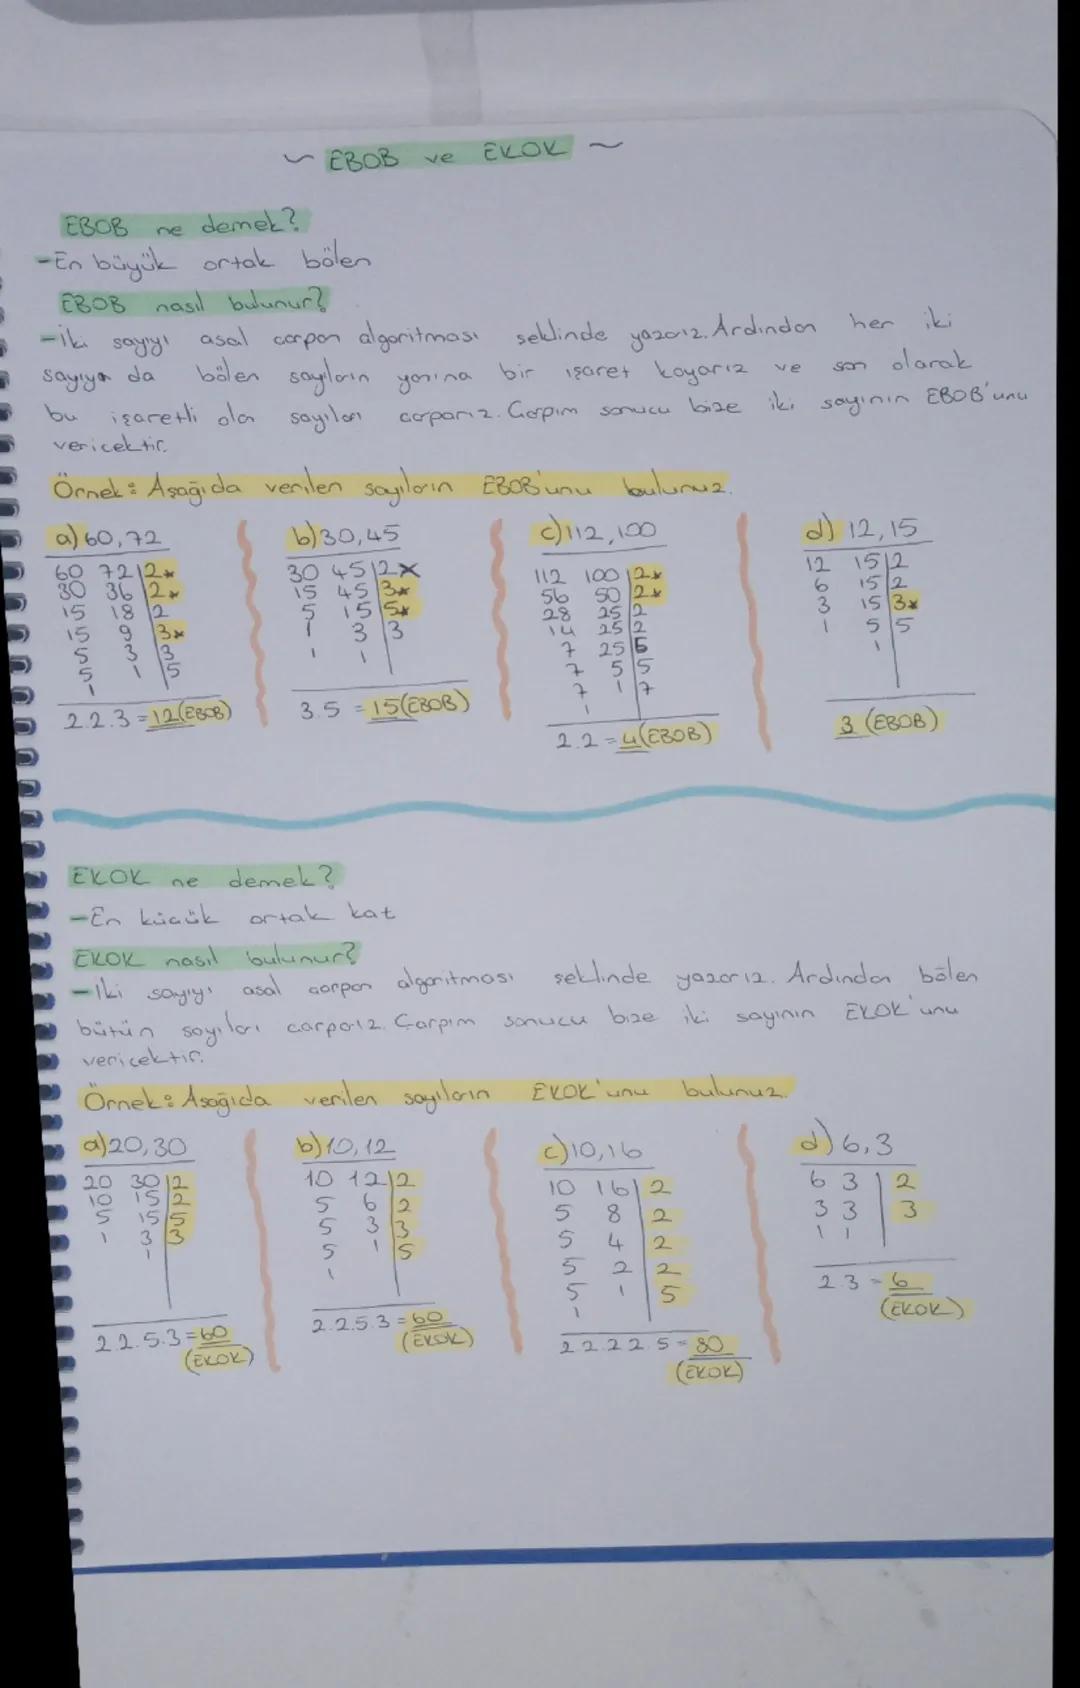 ~ EBOB ve EKOK ~
EBOB ne demek?
-En büyük ortak bölen
EBOB nasıl bulunur?
-İki sayıyı asal çarpan algoritması şeklinde yazarız. Ardından her iki
sayıya da bölen sayıların yanına bir işaret koyarız ve son olarak
bu işaretli olan sayıları çarparız. Çarpım sonucu bize iki sayının EBOB'unu
vericektir.
Örnek: Aşağıda verilen sayıların EBOB'unu bulunuz.
a) 60,72 b) 30,45 c) 112,100 d) 12,15
60 72 | 2*
30 36 | 2*
15 18 | 2
15 9 | 3*
5 3 | 3
5 1 | 5
1
2.2.3 = 12 (EBOB)
30 45 | 2 x
15 45 | 3*
5 15 | 5*
1 3 | 3
1 1
3.5 = 15 (EBOB)
112 100 | 2*
56 50 | 2*
28 25 | 2
14 25 | 2
7 25 | 5
7 5 | 5
7 1 | 7
1
2.2 = 4 (EBOB)
12 15 | 2
6 15 | 2
3 15 | 3*
1 5 | 5
1
3 (EBOB)
EKOK ne demek?
-En küçük ortak kat
EKOK nasıl bulunur?
-İki sayıyı asal çarpan algoritması şeklinde yazarız. Ardından bölen
bütün sayıları çarparız. Çarpım sonucu bize iki sayının EKOK'unu
vericektir.
Örnek: Aşağıda verilen sayıların EKOK'unu bulunuz.
a) 20,30 b) 10,12 c) 10,16 d) 6,3
20 30 | 2
10 15 | 2
5 15 | 5
1 3 | 3
1
2.2.5.3 = 60
(EKOK)
10 12 | 2
5 6 | 2
5 3 | 3
5 1 | 5
1
2.2.5.3 = 60
(EKOK)
10 16 | 2
5 8 | 2
5 4 | 2
5 2 | 2
5 1 | 5
1
2.2.2.2.5 = 80
(EKOK)
6 3 | 2
3 3 | 3
1 1
2.3 = 6
(EKOK)